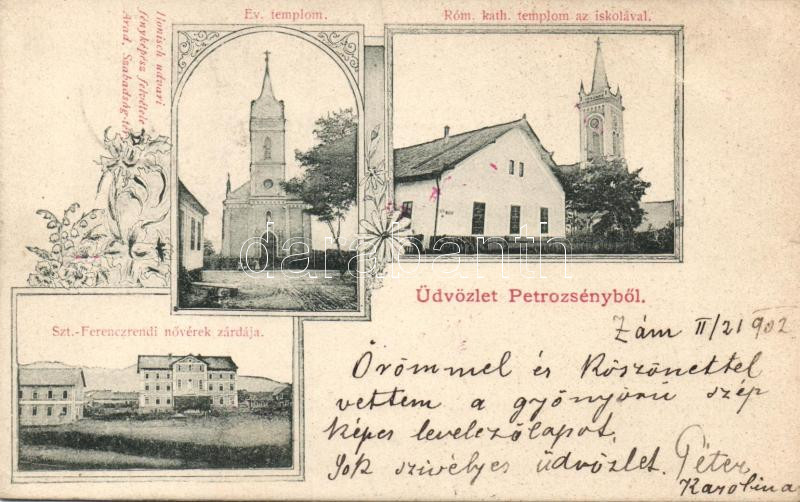 Ev. templom.
Róm. kath. templom az iskolával.
Honisch udvari
fényképész felvétele
Arad, Szabadság-tér
darabanth
Üdvözlet Petrozsényből.
Szt.-Ferenczrendi nővérek zárdája.
Zám II/21 902
Örömmel és Köszönettel
vettem a gyönyörű szép
képes levelezőlapot.
Sok szivélyes üdvözlet. Péter
Karolina